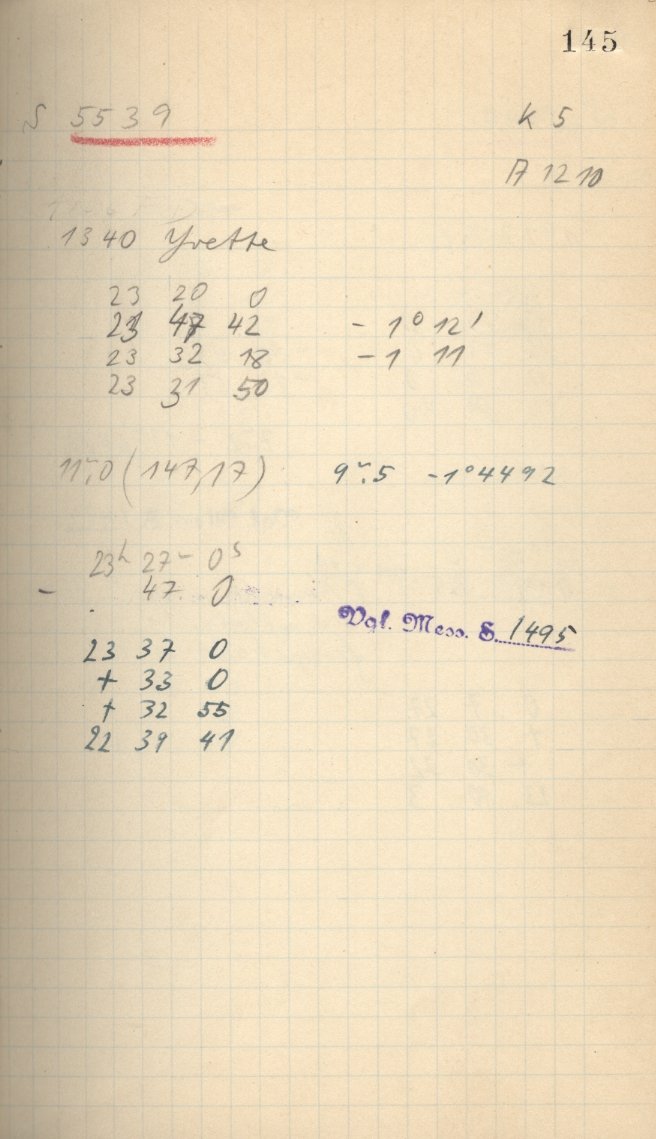 145
S 5539 K 5
A 12 10
1340 Yvette
23 20 0
23 47 42 - 1° 12'
23 32 18 - 1 11
23 31 50
11m,0 (147,17) 9m.5 -1°4492
23h 27m 0s
- 47 0
Vgl. Mess. S. 1495
23 37 0
+ 33 0
+ 32 55
22 39 41